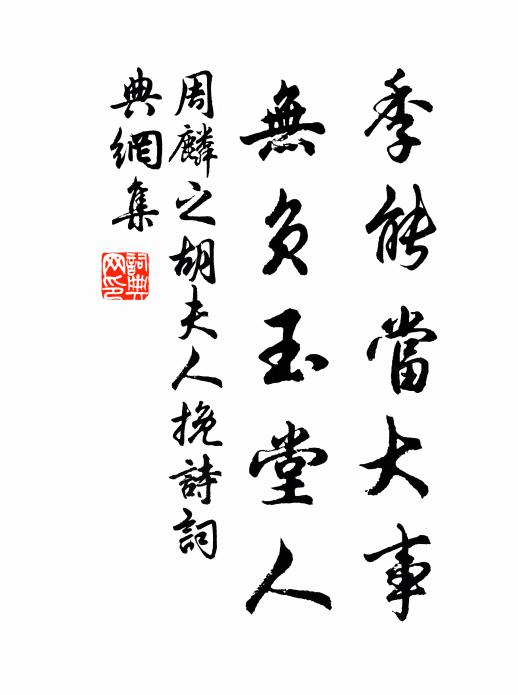 季能當大事
無負玉堂人
周麟之胡夫人挽詩詞
典網集
詞典
网印